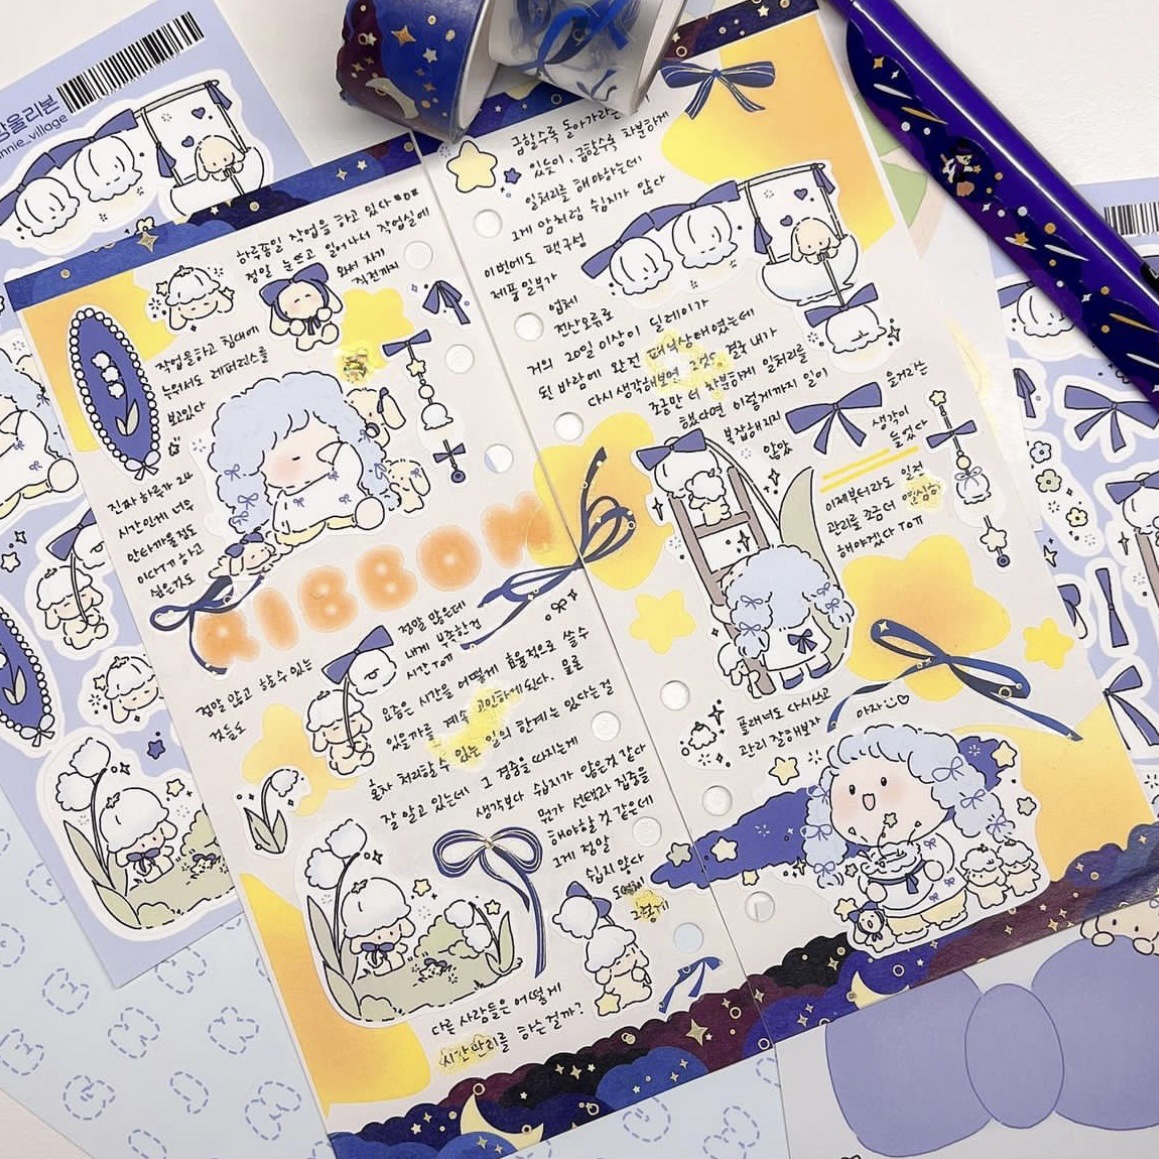 방울리본
nnie_village
하루종일 작업을 하고 있다
정말 눈뜨고 일어나서 작업실에
와서 자기
직전까지
작업을하고 침대에
누워서도 레퍼런스를
보고있다
진짜 하루가 24
시간인게 너무
안타까울정도
이다 하고
싶은것도
RIBBON
정말 많은데
내게 부족한건
시간
정말 많고 할수있는
것들도
요즘은 시간을 어떻게 효율적으로 쓸수
있을까를 계속 고민하게된다. 물론
혼자 처리할수 있는 일의 한계는 있다는걸
잘 알고 있는데 그 경중을 따지는게
생각보다 쉽지가 않은것 같다
뭔가 선택과 집중을
해야할 것 같은데
그게 정말
쉽지 않다
도대체
그렇게
다를 사람들은 어떻게
시간관리를 하는걸까?
급할수록 돌아가라는
있듯이, 급할수록 차분하게
일처리를 해야하는데
그게 맘처럼 쉽지가 않다
이번에도 팩구성
제품일부가
업체
전산오류로
거의 20일 이상이 딜레이가
된 바람에 완전 패닉상태였는데
다시생각해보면 그것도 결국 내가
조금만 더 차분하게 일처리를
했다면 이렇게까지 일이
복잡해지지
않았
을거라는
생각이
들었다
이제부터라도 일정
관리를 조금더 열심히
해야겠다
플래너도 다시쓰고
관리 잘해보자
아자